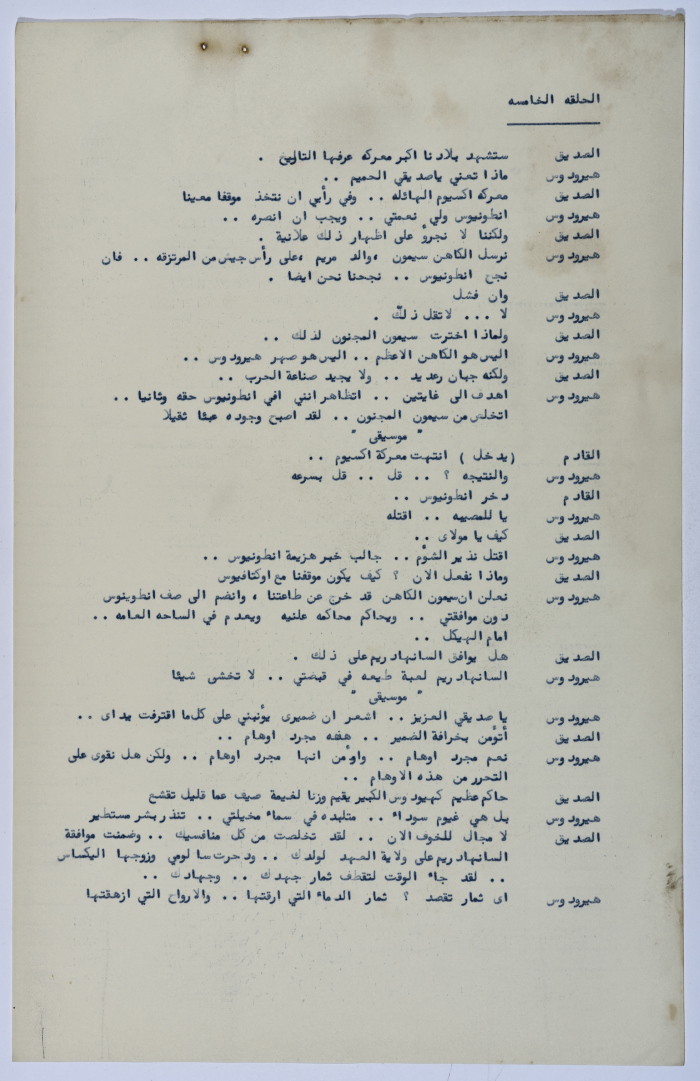 الحلقه الخامسه
الصديق ستشهد بلادنا اكبر معركه عرفها التاريخ .
هيرودوس ماذا تعني ياصديقي الحميم ..
الصديق معركه اكسيوم الهائله .. وفي رأيي ان نتخذ موقفا معينا
هيرودوس انطونيوس ولي نعمتي .. ويجب ان انصره ..
الصديق ولكننا لا نجرؤ على اظهار ذلك علانية .
هيرودوس نرسل الكاهن سيمون ،والد مريم ،على رأس جيش من المرتزقه .. فان
نجح انطونيوس .. نجحنا نحن ايضا .
الصديق وان فشل
هيرودوس لا ... لاتقل ذلك .
الصديق ولماذا اخترت سيمون المجنون لذلك ..
هيرودوس اليس هو الكاهن الاعظم .. اليس هو صهر هيرودوس ..
الصديق ولكنه جبان رعديد .. ولا يجيد صناعة الحرب ..
هيرودوس اهدف الى غايتين .. اتظاهر انني افي انطونيوس حقه وثانيا ..
اتخلص من سيمون المجنون .. لقد اصبح وجوده عبئا ثقيلا
" موسيقى "
القادم (يدخل ) انتهت معركة اكسيوم ..
هيرودوس والنتيجه ؟ .. قل .. قل بسرعه
القادم دحر انطونيوس ..
هيرودوس يا للمصيبه .. اقتله
الصديق كيف يا مولاى ..
هيرودوس اقتل نذير الشؤم .. جالب خبر هزيمة انطونيوس ..
الصديق وماذا نفعل الان ؟ كيف يكون موقفنا مع اوكتافيوس
هيرودوس نعلن ان سيمون الكاهن قد خرج عن طاعتنا ، وانضم الى صف انطوينوس
دون موافقتي .. ويحاكم محاكمه علنيه ويعدم في الساحه العامه ..
امام الهيكل ..
الصديق هل يوافق السانهادريم على ذلك .
هيرودوس السانهادريم لعبة طيعه في قبضتي .. لا تخشى شيئا
" موسيقى "
هيرودوس يا صديقي العزيز .. اشعر ان ضميرى يؤنبني على كل ما اقترفت يداى ..
الصديق أتؤمن بخرافة الضمير .. هذه مجرد اوهام ..
هيرودوس نعم مجرد اوهام .. واؤمن انها مجرد اوهام .. ولكن هل نقوى على
التحرر من هذه الاوهام ..
الصديق حاكم عظيم كهيودوس الكبير يقيم وزنا لغيمة صيف عما قليل تقشع
هيرودوس بل هي غيوم سوداء .. متلبده في سماء مخيلتي .. تنذر بشر مستطير
الصديق لا مجال للخوف الان .. لقد تخلصت من كل منافسيك .. وضمنت موافقة
السانهادريم على ولاية العهد لولدك .. ودحرت سالومي وزوجها اليكساس
.. لقد جاء الوقت لتقطف ثمار جهدك .. وجهادك ..
هيرودوس اى ثمار تقصد ؟ ثمار الدماء التي ارقتها .. والارواح التي ازهقتها